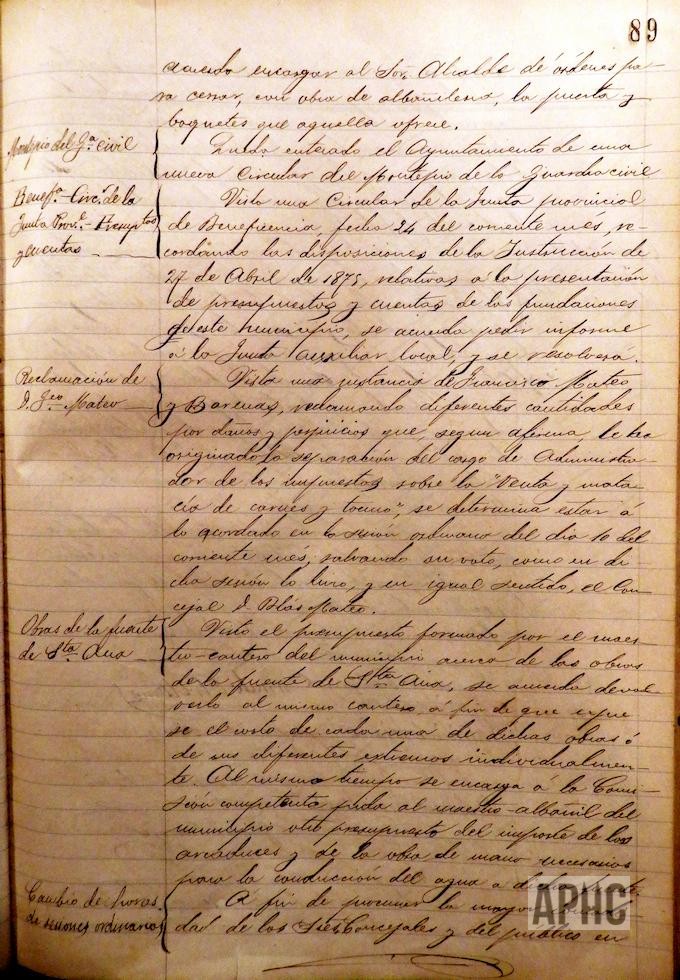 89
acuerda encargar al Sor. Alcalde dé órdenes pa-
ra cerrar, con obra de albañileria, la puerta y
boquetes que aquella ofrece.
Montepio del Ga. civil
Queda enterado el Ayuntamiento de una
nueva Circular del Montepio de la Guardia civil
Benefa. - Circr. de la
Junta Provl. - Presuptos
y cuentas
Vista una Circular de la Junta provincial
de Beneficencia, fecha 24 del corriente més, re-
cordando las disposiciones de la Instrucción de
27 de Abril de 1875, relativas á la presentación
de presupuestos y cuentas de las fundaciones
de este municipio, se acuerda pedir informe
á la Junta auxiliar local, y se resolverá.
Reclamación de
D. Fco. Mateo
Vista una instancia de Francisco Mateo
y Barenas, reclamando diferentes cantidades
por daños y perjuicios que segun afirma, le ha
originado la separación del cargo de Administra-
dor de los impuestos sobre la "Venta y mata-
cía de carnes y tocino", se determina estar á
lo acordado en la sesión ordinaria del dia 10 del
corriente més, salvando su voto, como en di-
cha sesión lo hizo, y en igual sentido, el Con-
cejal D. Blás Mateo.
Obras de la fuente
de Sta. Ana
Visto el presupuesto formado por el maes-
tro-cantero del municipio acerca de las obras
de la fuente de Sta. Ana, se acuerda devol-
verlo al mismo cantero á fin de que expre-
se el costo de cada una de dichas obras ó
de sus diferentes extremos individualmen-
te. Al mismo tiempo se encarga á la Comi-
sión competente pida al maestro-albañil del
municipio otro presupuesto del importe de los
arcaduces y de la obra de mano necesarios
para la conducción del agua a dicha
Cambio de horas
de sesiones ordinarias
A fin de procurar la mayor
dad de los Sres. Concejales y del publico en
APHC